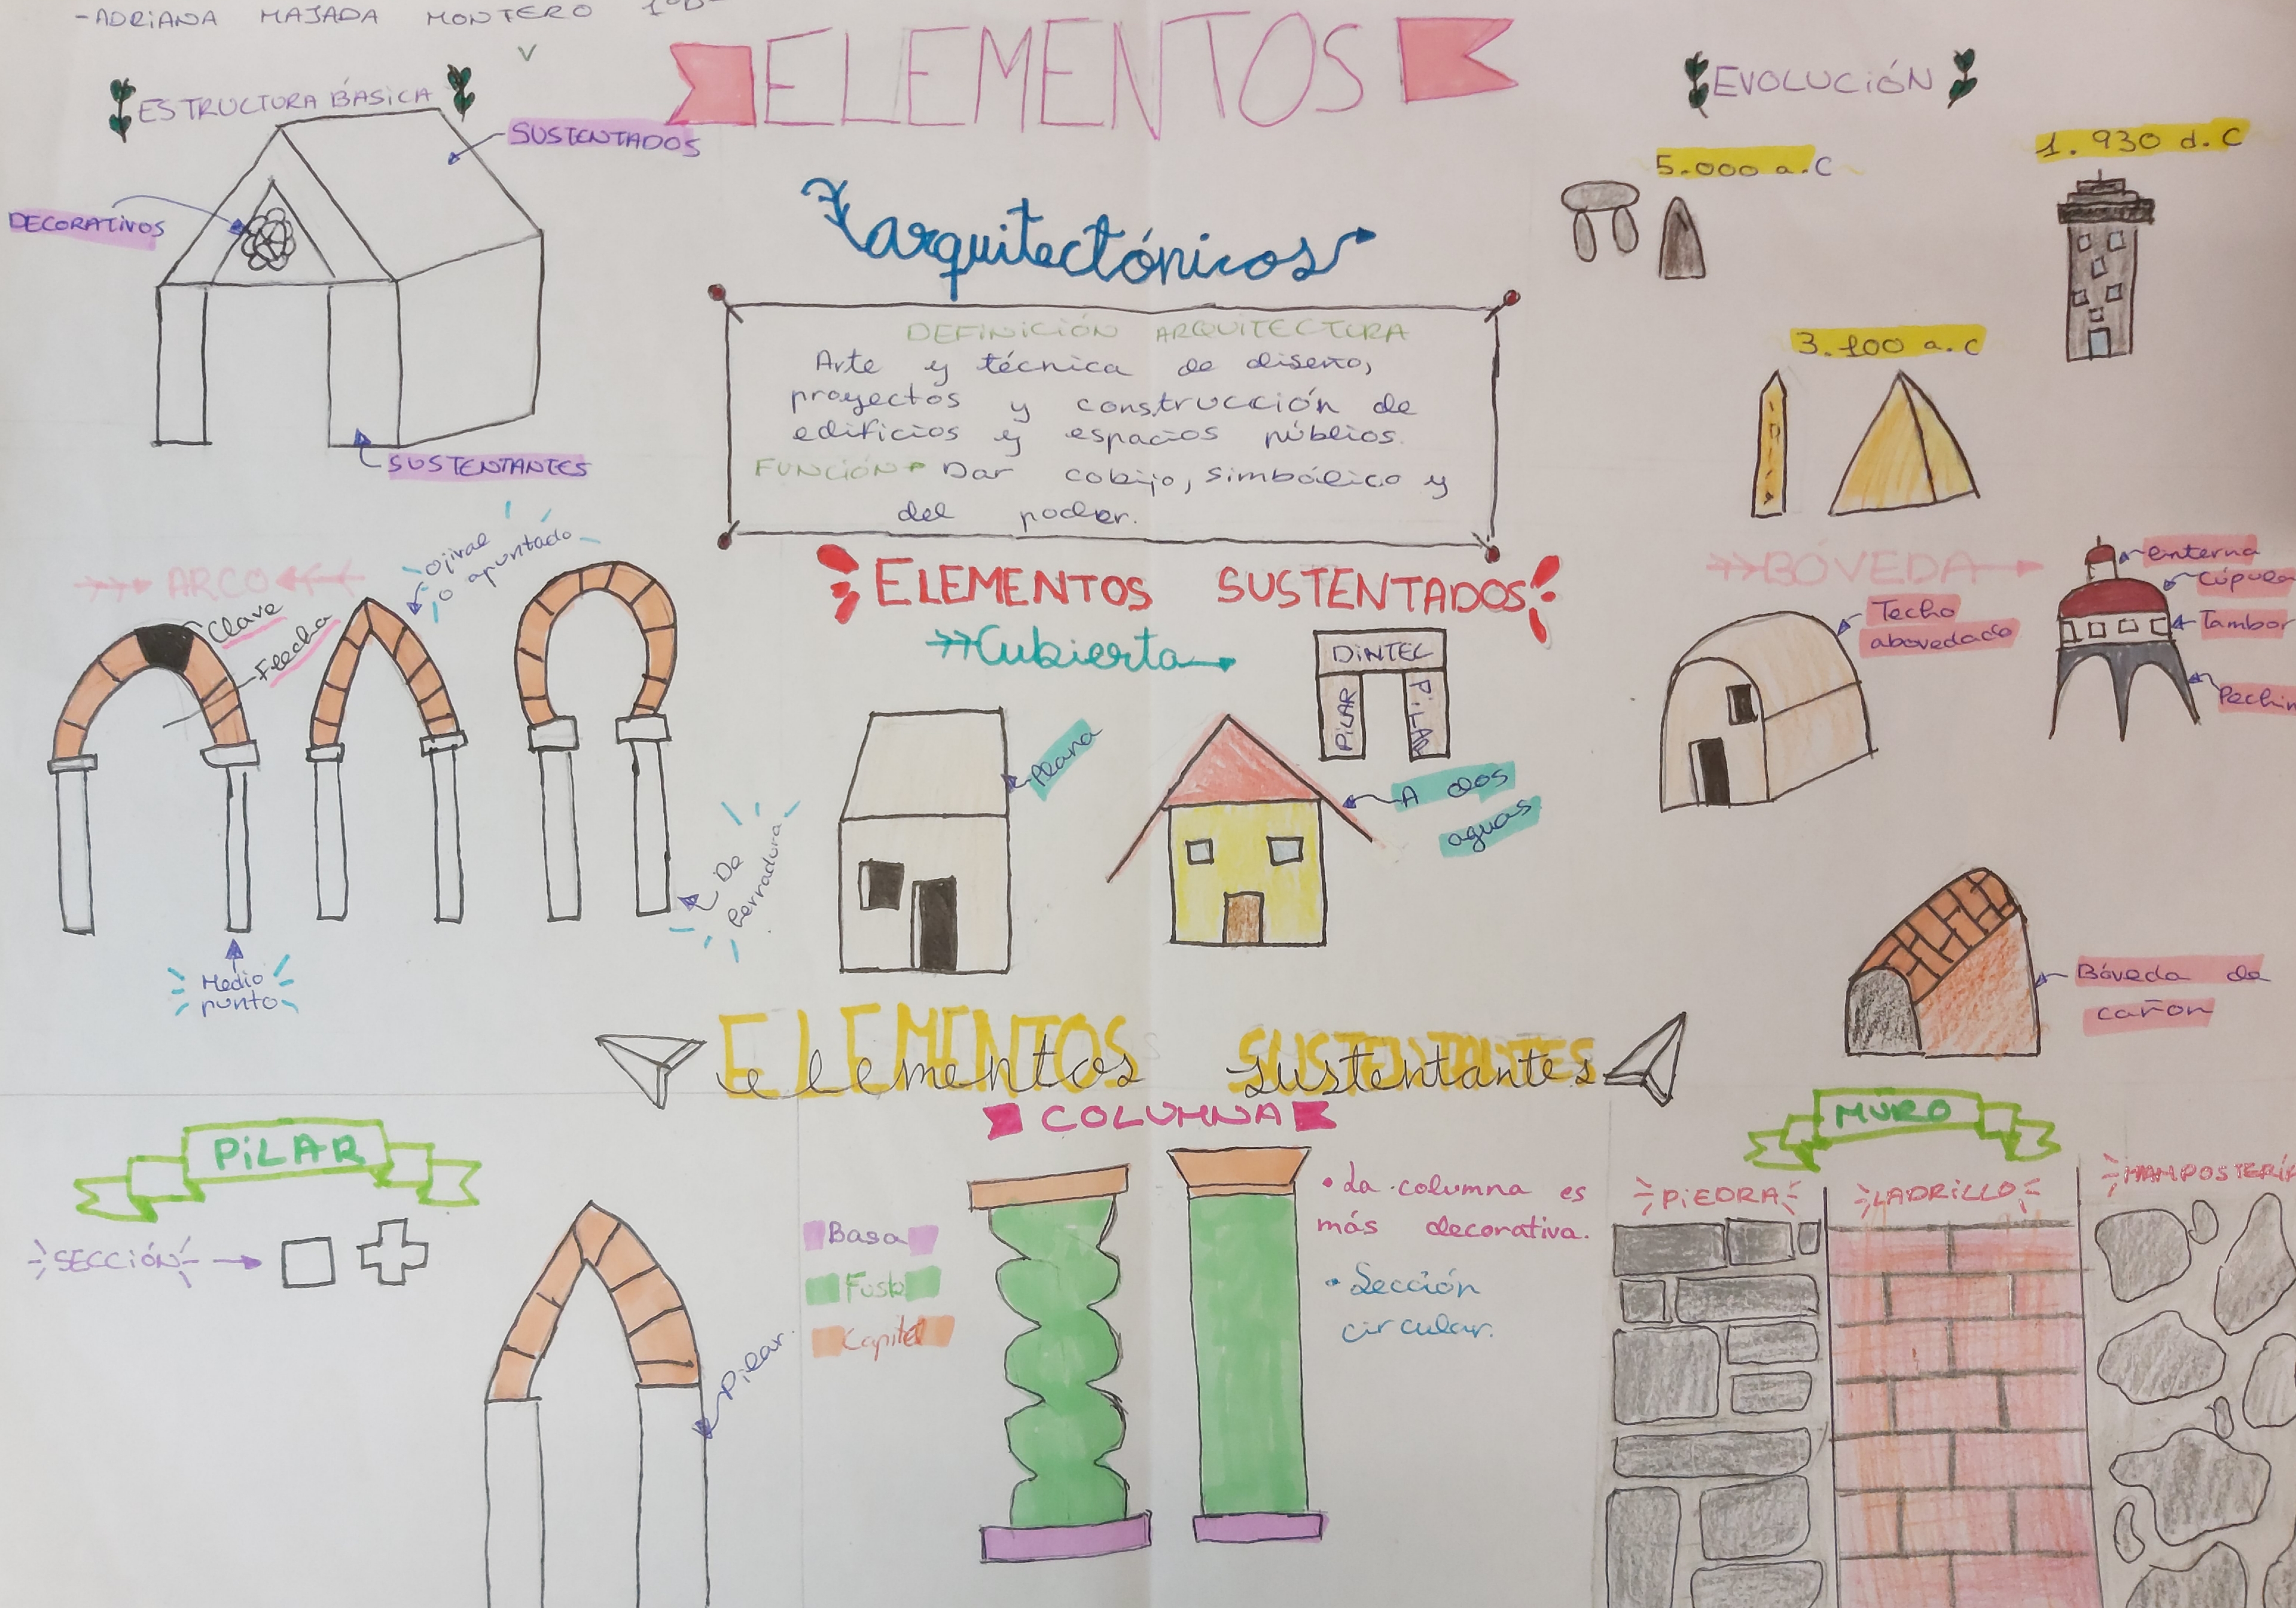 -ADRIANA MAJADA MONTERO 1ºD-
ELEMENTOS
arquitectónicos
ESTRUCTURA BÁSICA
SUSTENTADOS
DECORATIVOS
SUSTENTANTES
DEFINICIÓN ARQUITECTURA
Arte y técnica de diseño,
proyectos y construcción de
edificios y espacios públios.
FUNCIÓN Dar cobijo, simbólico y
del poder.
EVOLUCIÓN
5.000 a.C
1.930 d.C
3.100 a.C
ARCO
Clave
Flecha
Ojival
o apuntado
De
herradura
Medio
punto
ELEMENTOS SUSTENTADOS
Cubierta
DINTEL
PILAR
PILAR
Plana
A dos
aguas
BÓVEDA
Techo
abovedado
enterna
Cúpula
Tambor
Pechin
Bóveda de
cañon
ELEMENTOS SUSTENTANTES
elementos sustentantes
PILAR
SECCIÓN
Pilar.
COLUMNA
Basa
Fuste
Capitel
• La columna es
más decorativa.
• Sección
circular.
MURO
PIEDRA
LADRILLO
MAMPOSTERÍA